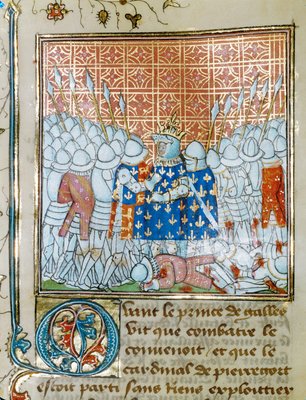 Quant le prince de galles
vit que combatre le
conuenoit, et que le
cardinal de pierregort
estoit parti sans riens exploittier